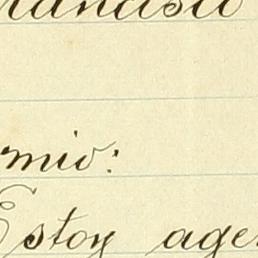 rancisco
rmio:
Estoy age